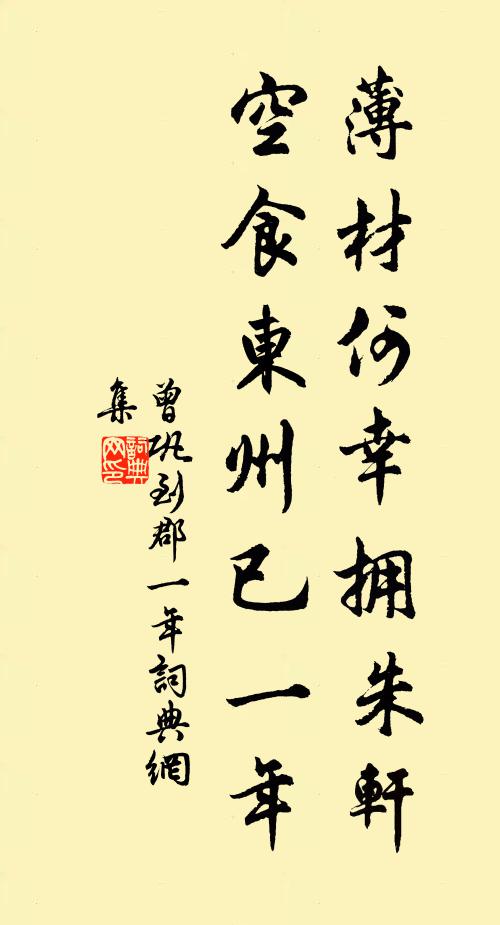 薄材何幸拥朱軒
空食東州已一年
曾巩到郡一年詞典網
集
詞典
网印